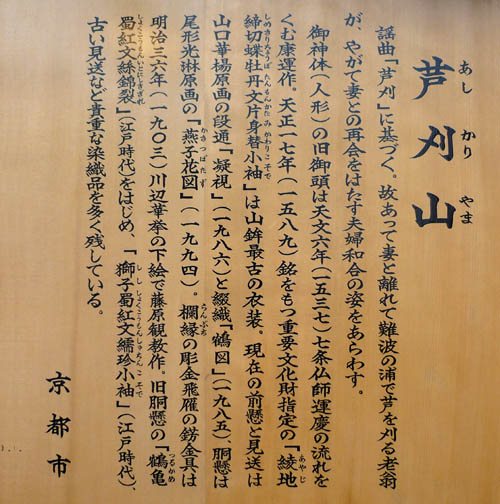 芦刈山
あしかりやま
謡曲「芦刈」に基づく。故あって妻と離れて難波の浦で芦を刈る老翁
が、やがて妻との再会をはたす夫婦和合の姿をあらわす。
御神体(人形)の旧御頭は天文六年(一五三七)七条仏師運慶の流れを
くむ康運作。天正一七年(一五八九)銘をもつ重要文化財指定の「綾地
締切蝶牡丹文片身替小袖」は山鉾最古の衣装。現在の前懸と見送は
山口華楊原画の段通「凝視」(一九八六)と綴織「鶴図」(一九八五)、胴懸は
尾形光琳原画の「燕子花図」(一九九四)。欄縁の彫金飛雁の錺金具は
明治三六年(一九〇三)川辺華挙の下絵で藤原観教作。旧胴懸の「鶴亀
蜀紅文絲錦裂」(江戸時代)をはじめ、「獅子蜀紅文繻珍小袖」(江戸時代)、
古い見送など貴重な染織品を多く残している。
京都市